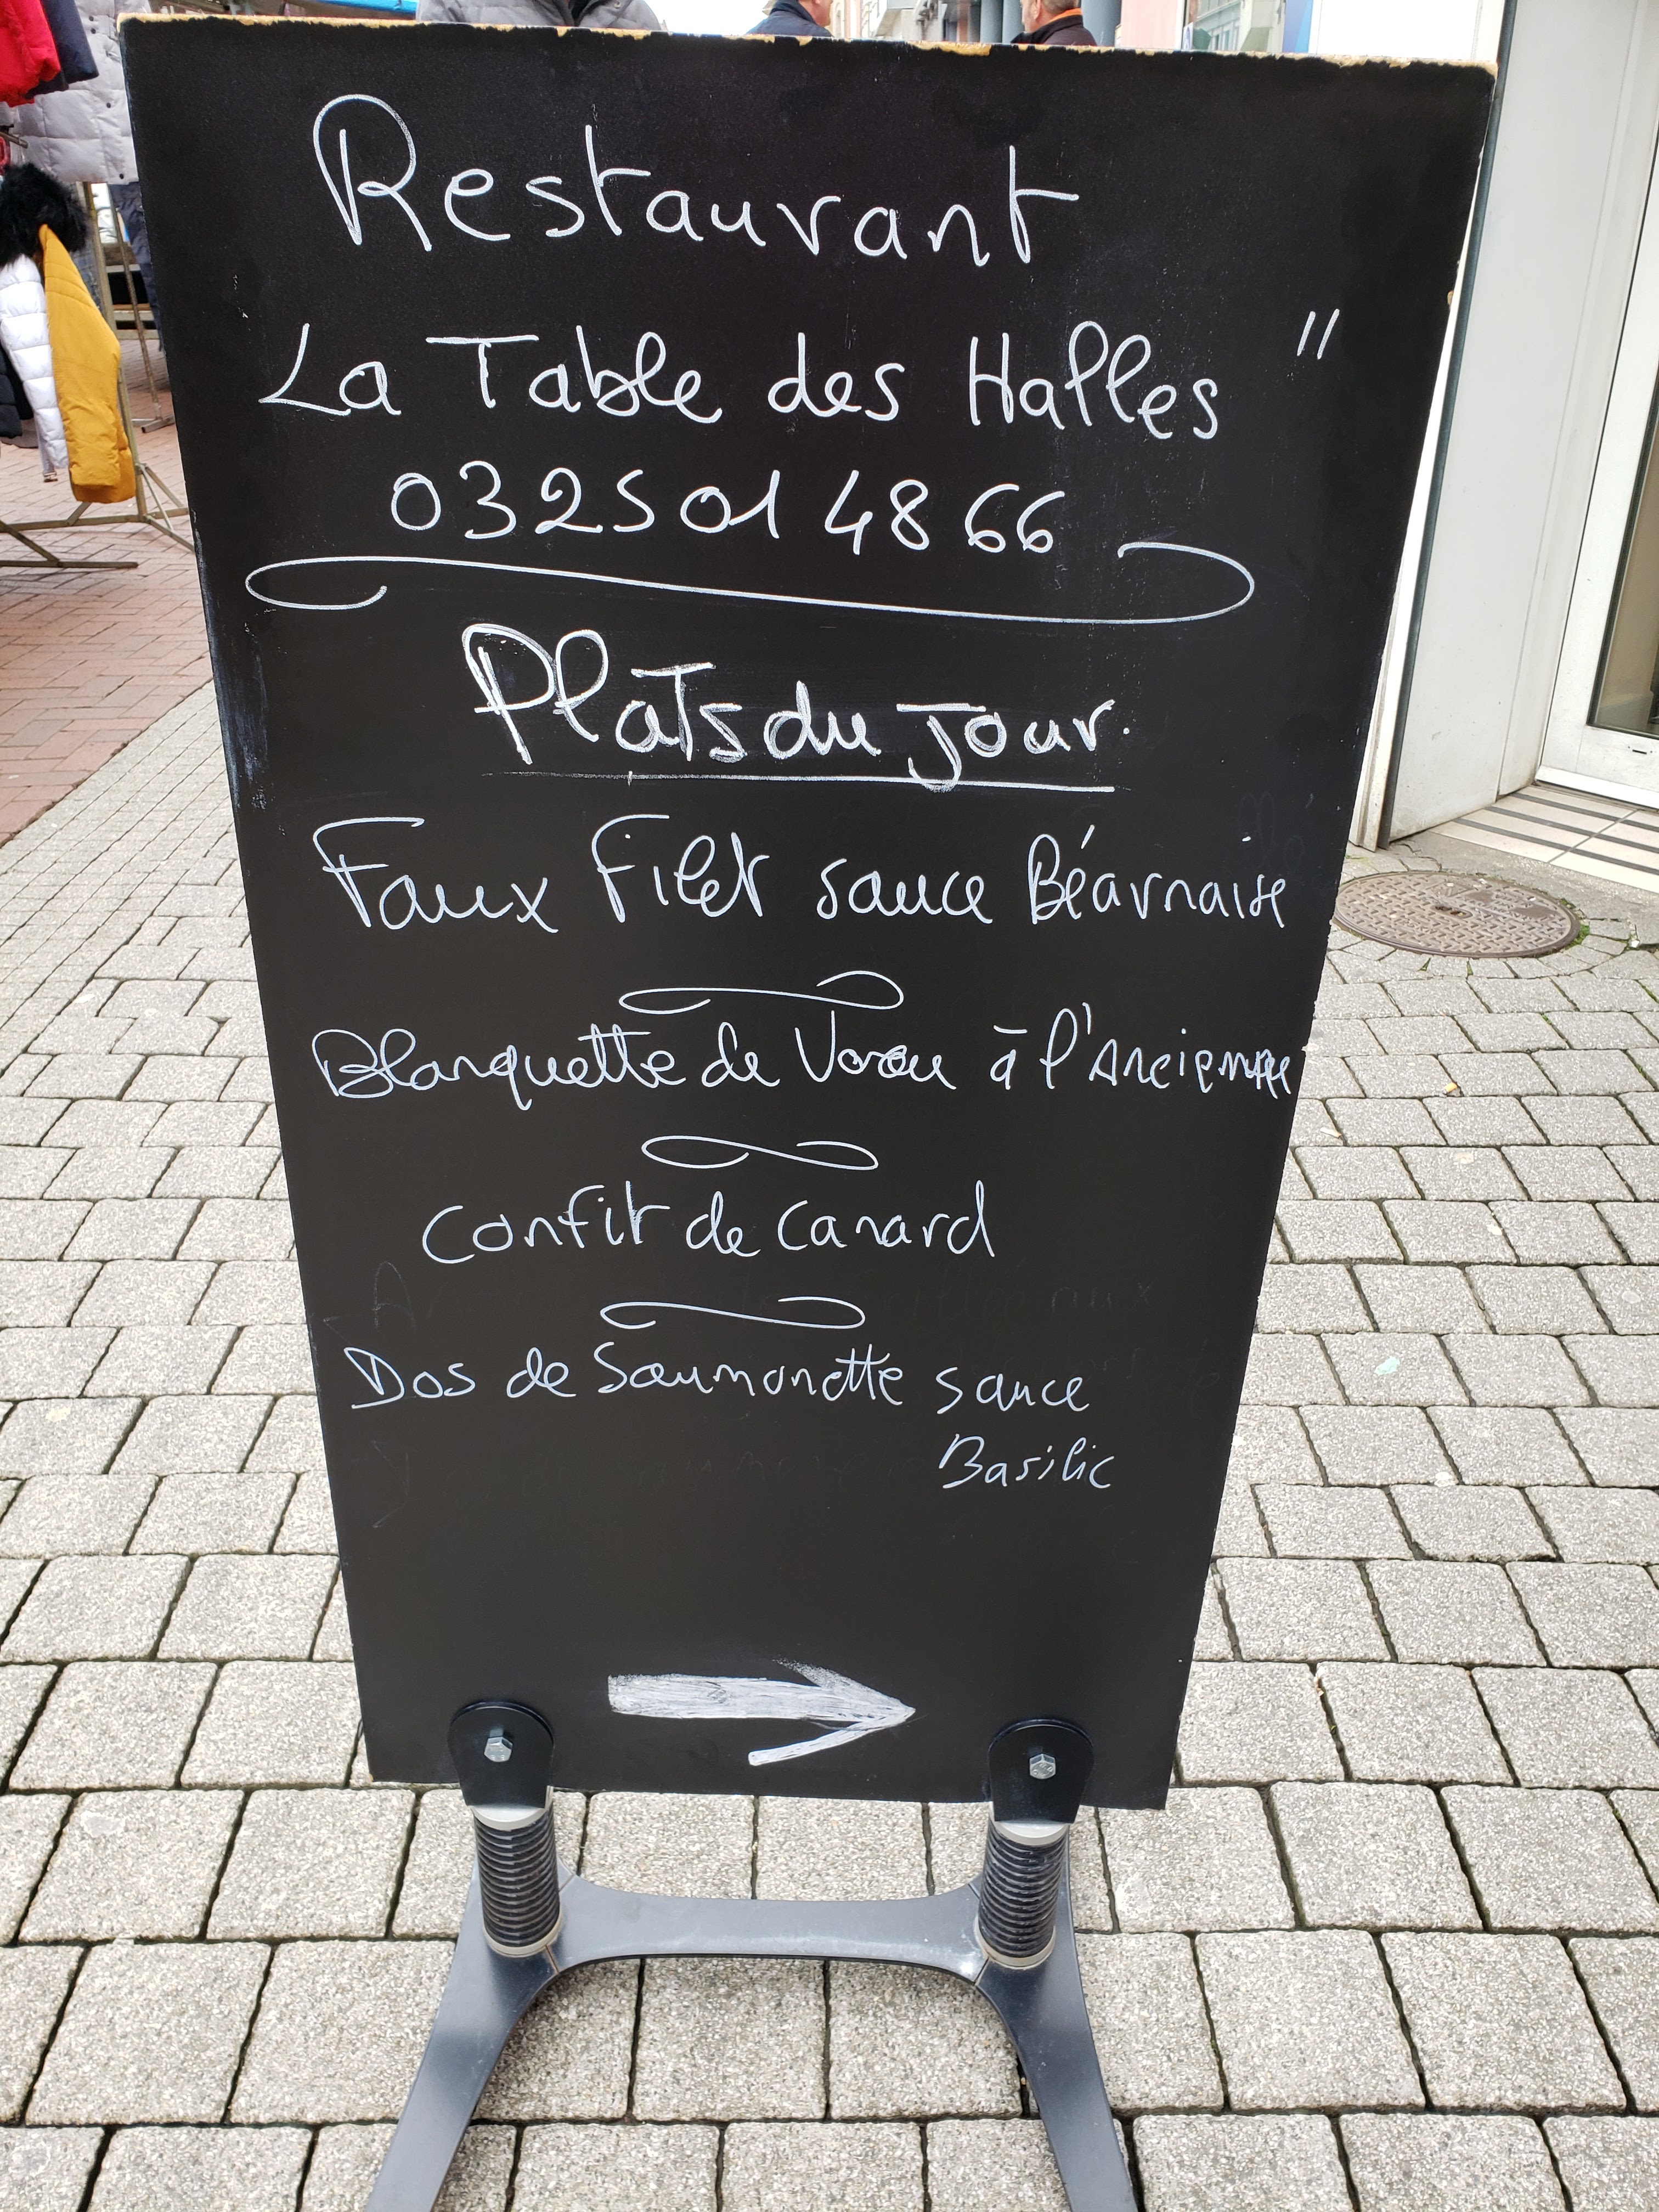 Restaurant
La Table des Halles "
03 25 01 48 66
Plats du jour.
Faux Filet sauce Béarnaise
Blanquette de Veau à l'Ancienne
Confit de Canard
Dos de Saumonette sauce
Basilic